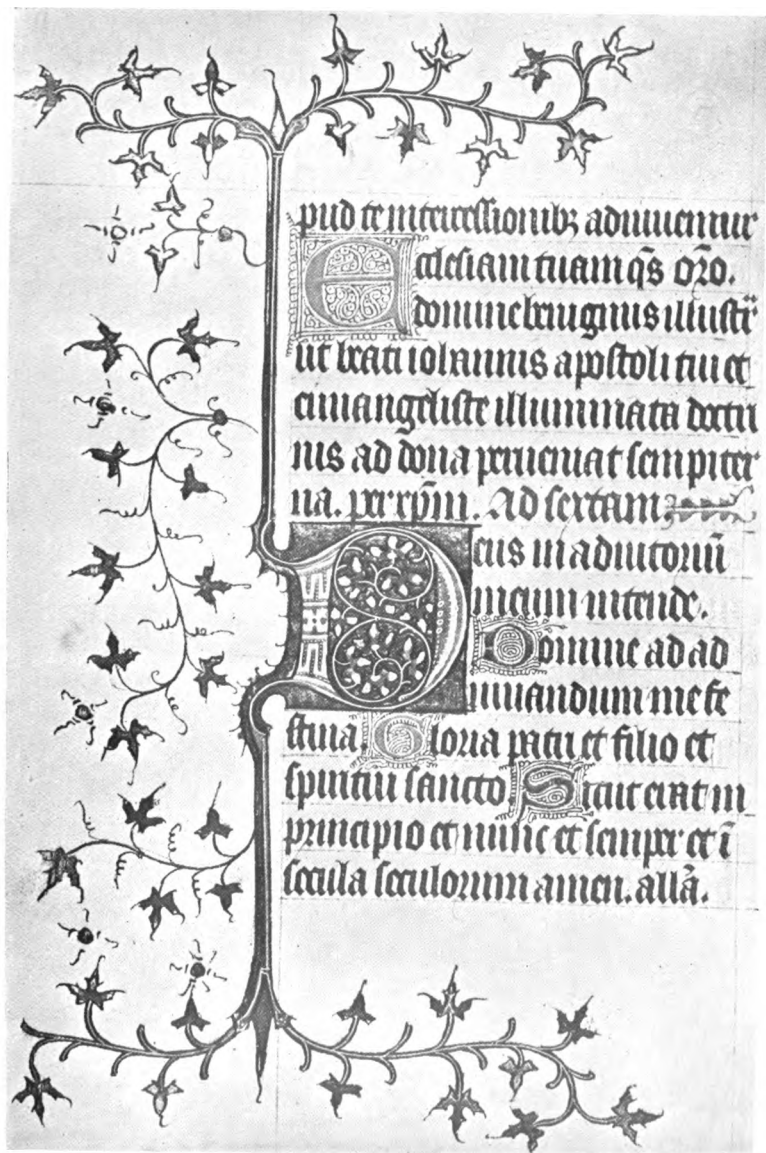 pud te intercessionibꝫ adiuuentur
Ecclesiam tuam q̄s Oro.
domine benignus illustr̄
ut beati iohannis apostoli tui et
euuangeliste illuminata doctri
nis ad dona perueniat sempiter
na. per xp̄m. Ad sextam.
Deus in adiutoriū
meum intende.
Domine ad ad
iuuandum me fe
stina. Gloria patri et filio et
spiritui sancto. Sicut erat in
principio et nunc et semper et ī
secula seculorum amen. all̄a.